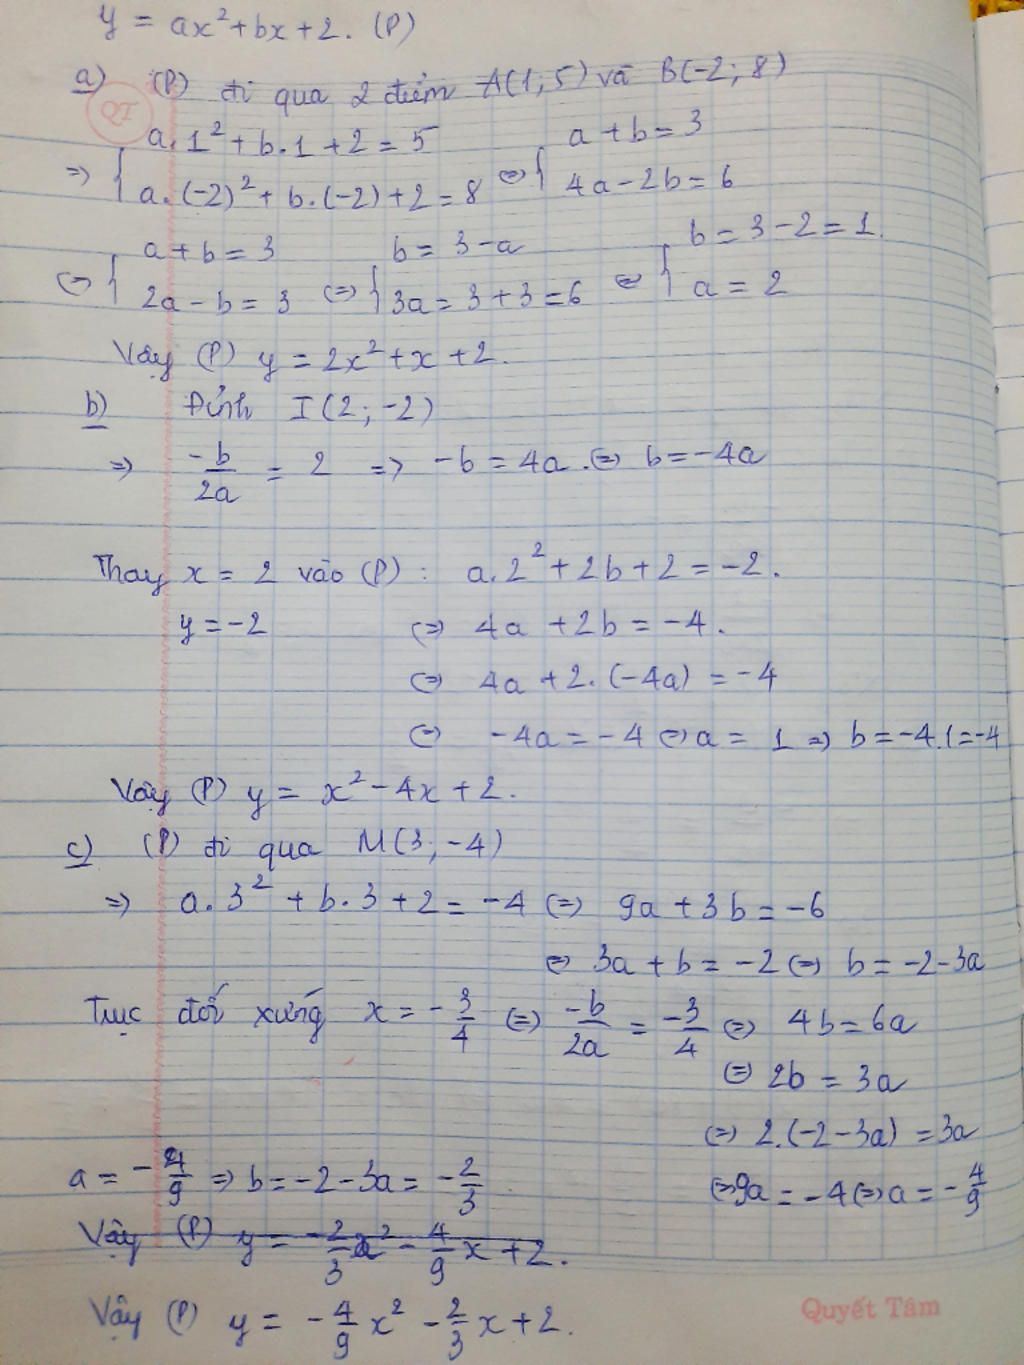 y = ax² + bx + 2. (P)
a) (P) đi qua 2 điểm A(1; 5) và B(-2; 8)
QT
=> { a.1² + b.1 + 2 = 5 <=> { a + b = 3
a.(-2)² + b.(-2) + 2 = 8 4a - 2b = 6
<=> { a + b = 3 <=> { b = 3 - a <=> { b = 3 - 2 = 1.
2a - b = 3 3a = 3 + 3 = 6 a = 2
Vậy (P) y = 2x² + x + 2.
b) Đỉnh I(2; -2)
=> -b/2a = 2 => -b = 4a. <=> b = -4a
Thay x = 2 vào (P): a.2² + 2b + 2 = -2.
y = -2 <=> 4a + 2b = -4.
<=> 4a + 2.(-4a) = -4
<=> -4a = -4 <=> a = 1 => b = -4.1 = -4
Vậy (P) y = x² - 4x + 2.
c) (P) đi qua M(3; -4)
=> a.3² + b.3 + 2 = -4 <=> 9a + 3b = -6
<=> 3a + b = -2 <=> b = -2 - 3a
Trục đối xứng x = -3/4 <=> -b/2a = -3/4 <=> 4b = 6a
<=> 2b = 3a
<=> 2.(-2 - 3a) = 3a
a = -4/9 => b = -2 - 3a = -2/3 <=> 9a = -4 <=> a = -4/9
Vậy (P) y = -2/3x² - 4/9x + 2.
Vậy (P) y = -4/9x² - 2/3x + 2.
Quyết Tâm